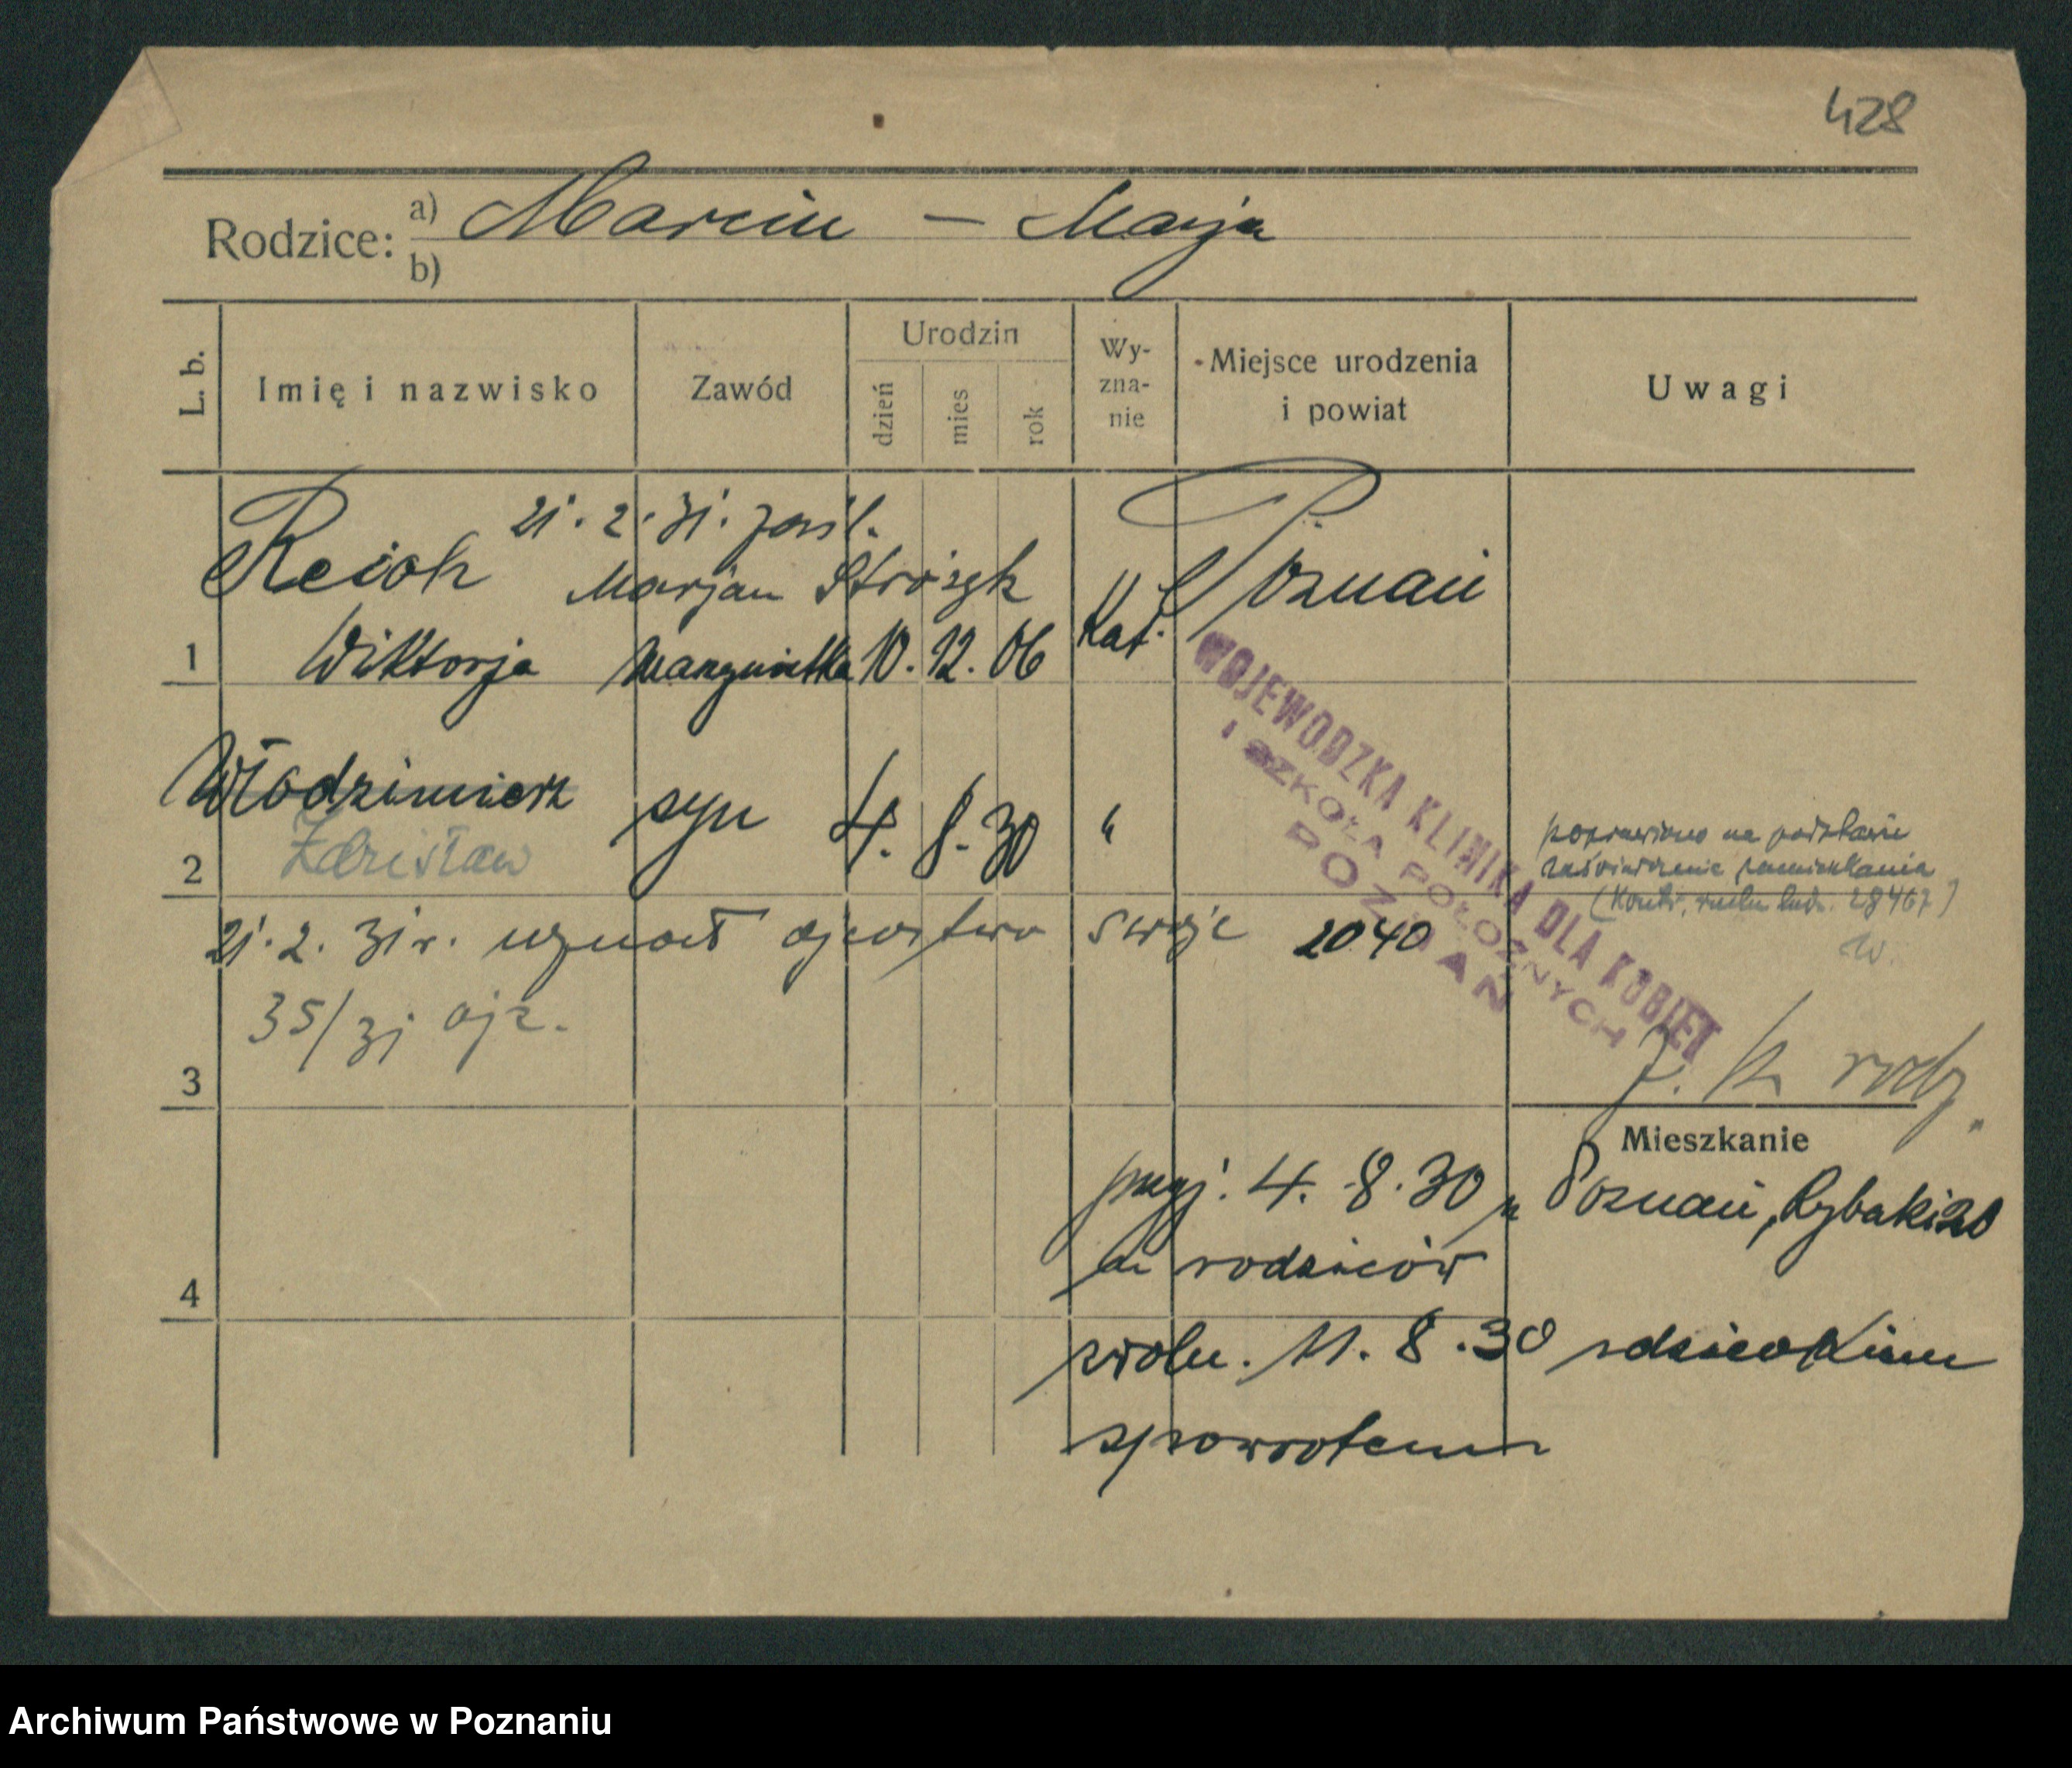 428
Rodzice: a) Marcin – Marja
b)
L. b.
Imię i nazwisko
Zawód
Urodzin
dzień
mies
rok
Wy-
zna-
nie
Miejsce urodzenia
i powiat
Uwagi
21. 2. 31. zaśl.
Reich Marjan Stróżyk
1 Wiktorja 10. 12. 06 Kat. Poznań
WOJEWÓDZKA KLINIKA DLA KOBIET
I SZKOŁA POŁOŻNYCH
POZNAŃ
Włodzimierz syn 4. 8. 30 "
2 Zdzisław
poprawiono na podstawie
zaświadczenie zamieszkania
(Kontr. ruchu ludn. 28467)
W.
21. 2. 31 r. uznał ojcostwo swoje 2040
35/31 ojc.
3
Mieszkanie
przyj. 4. 8. 30 Poznań, Rybaki 20
rodziców
4
zwoln. 11. 8. 30 z dzieckiem
spowrotem
Archiwum Państwowe w Poznaniu